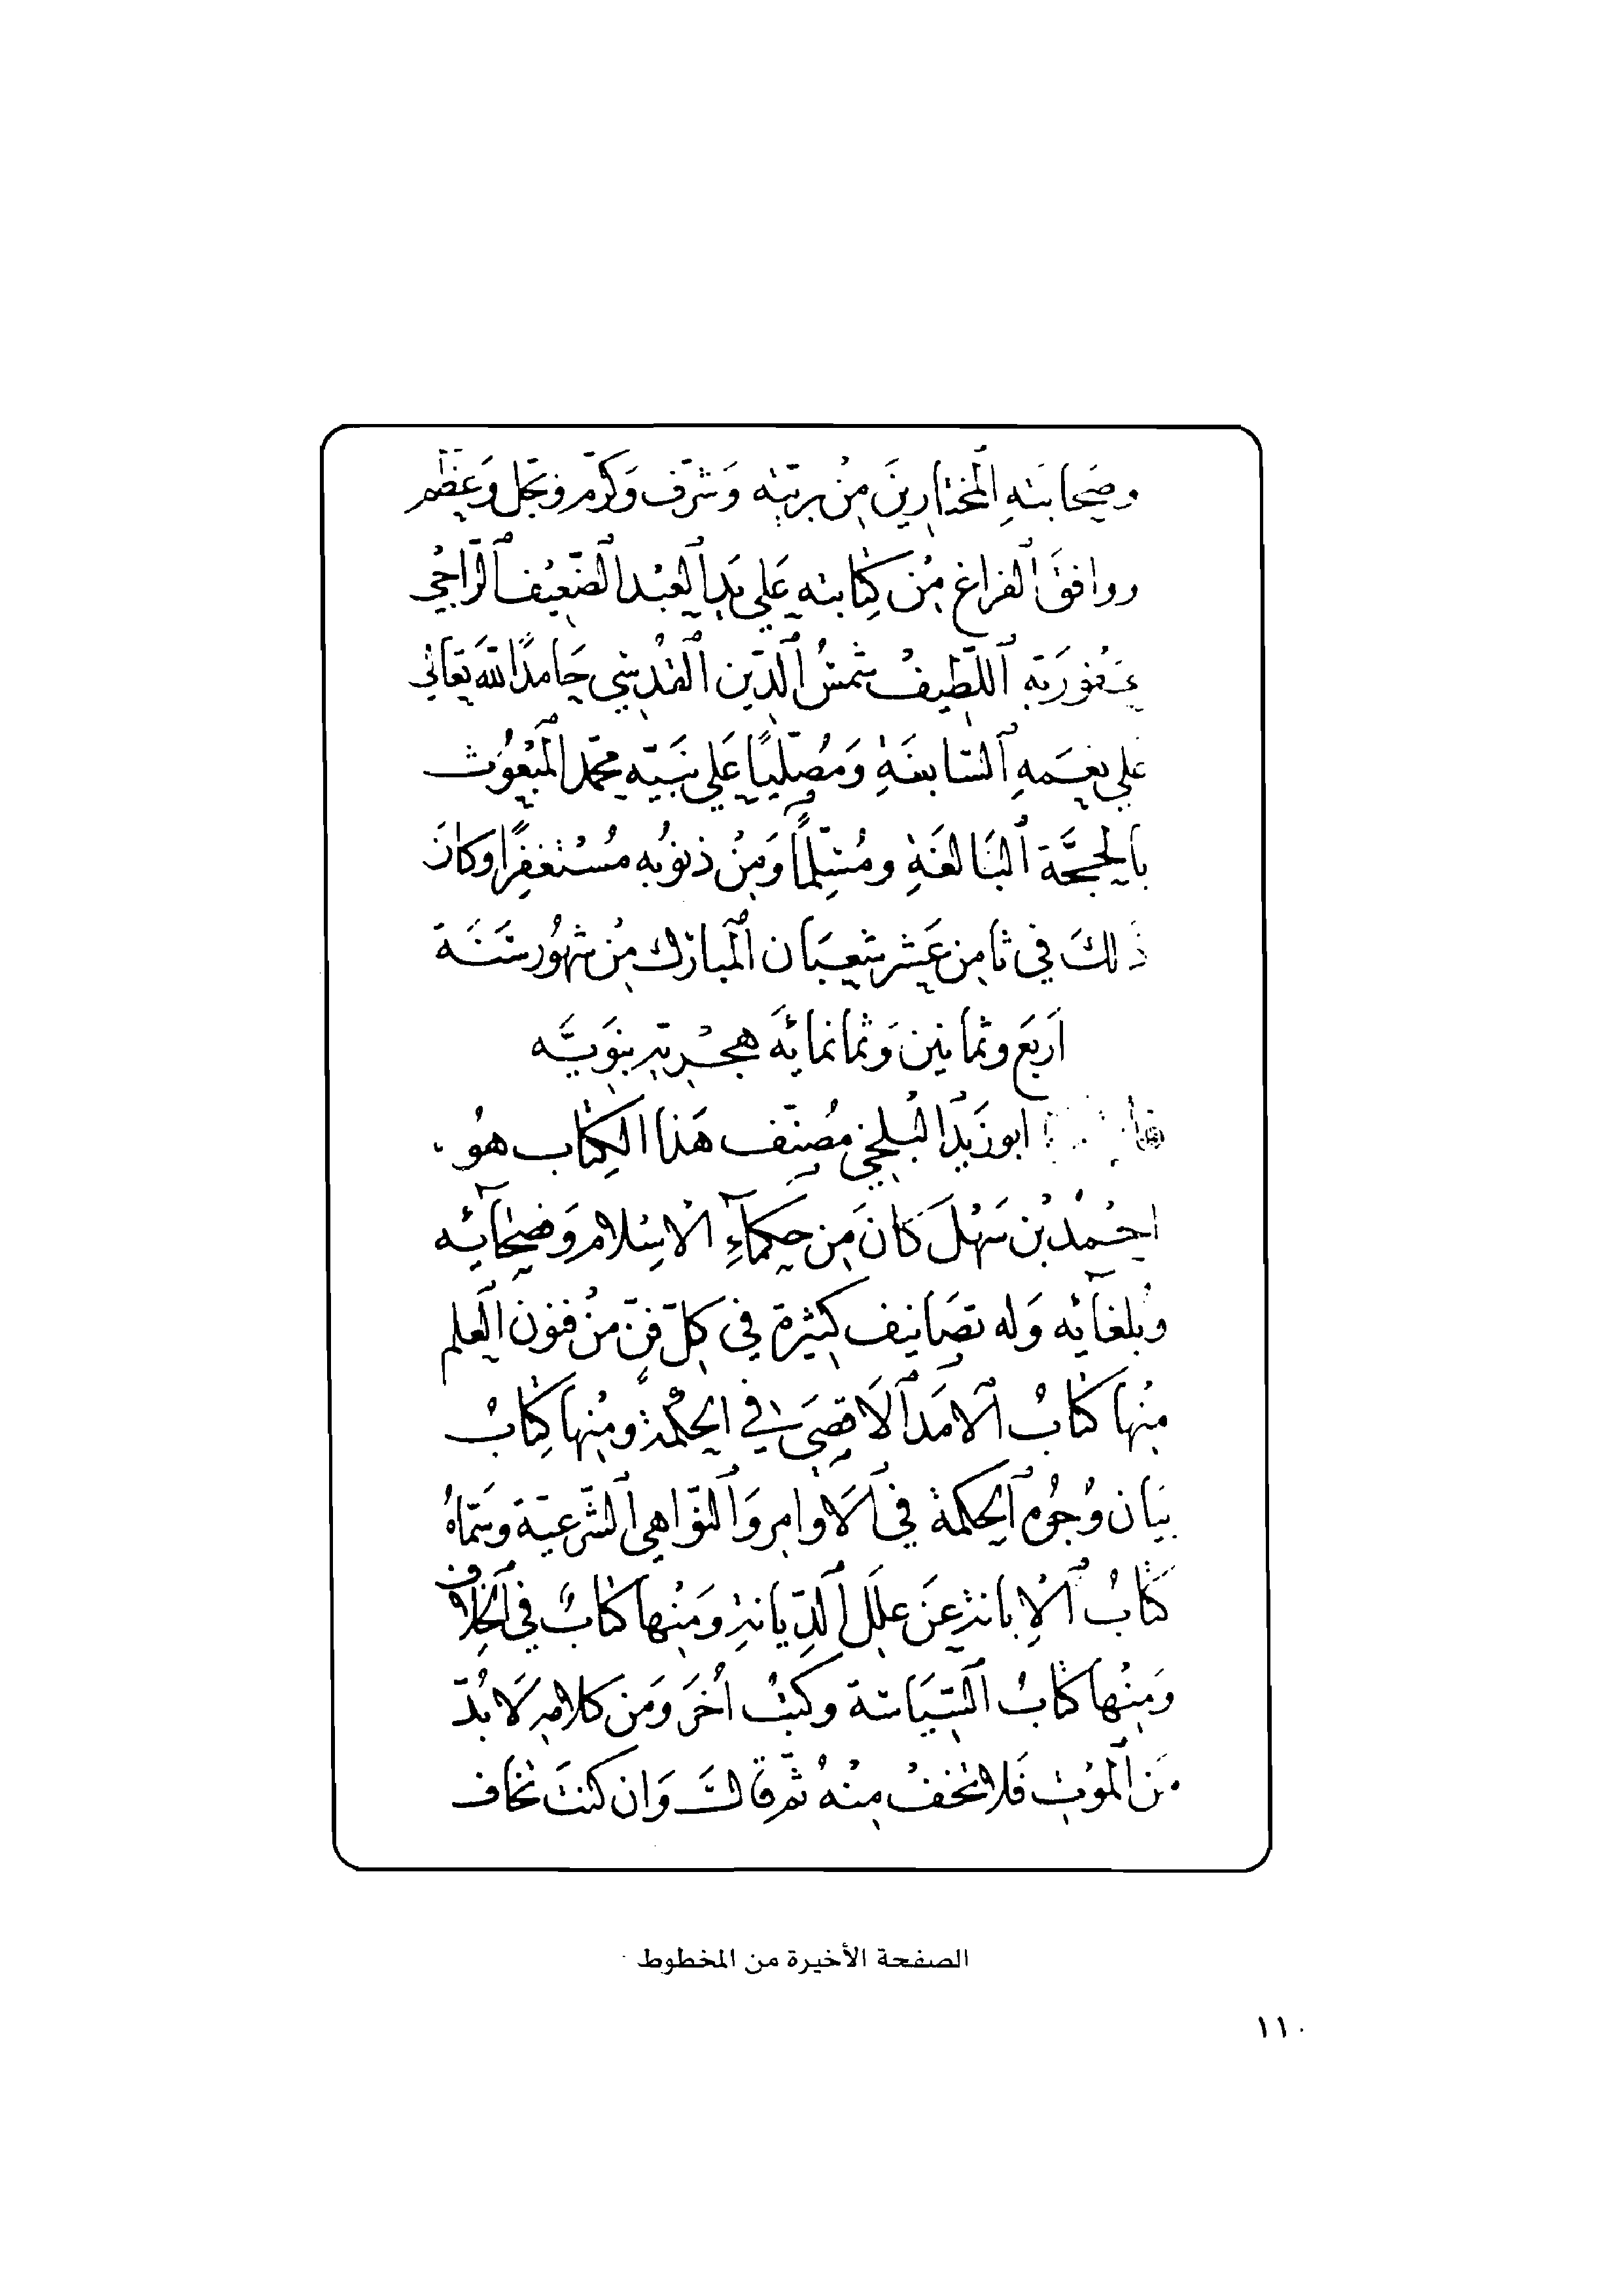 وصَحابَتهِ المختارِينَ مِنْ بريّته وَشرّف وَكرّم وبجّل وَعَظّم
ووافقَ الفراغ مِنْ كِتابته عَلي يَدِ العَبْد الضّعِيْف الرّاجيْ
عَفْوَ رَبّهِ اللّطِيفْ شمسُ الدّين القدْسِي حَامدًا لله تعَالى
عَلي نِعَمهِ السّابغَةِ وَمُصَلّيًا عَلي نَبيّه محمّد المَبْعُوْث
بالحجَّة البَالغَةِ ومُسَلِّمًا وَمِنْ ذنوُبه مُسْتغفِرًا وَكانَ
ذَلكَ في ثامِن عَشر شعبَان المبارَك مِنْ شهوُر سَنَة
اَربَع وثمانين وَثمانمائة هجْريّة نبَويَّه
ابو زَيْد البَلخي مُصَنّف هَذا الكِتاب هوُ
احْمدْ بْن سَهْل كانَ مِن حكماءِ الاسْلام وَفصَحائه
وَبُلغائه وَله تصَانيف كثيْرة في كلّ فنّ مِنْ فنوُن العلم
مِنْها كتابُ الامَد الاَقصَى في الحكْمة ومِنها كِتابُ
بَيان وُجُوه الحِكمة في الاَوامِر وَالنّوَاهِي الشّرعيّة وَسَمّاهُ
كتابُ الاِبانة عَنْ عِللِ الدِّيانةِ ومِنْها كتابٌ في الخِلاف
وَمِنْها كتابُ السّيَاسَة وكتبٌ اُخرَ وَمن كلامهِ لَا بُدّ
مِن الموْتِ فَلا تخفْ مِنْهُ ثمّ قالَ وَان كنتَ تخاف
الصفحة الأخيرة من المخطوط
١١٠